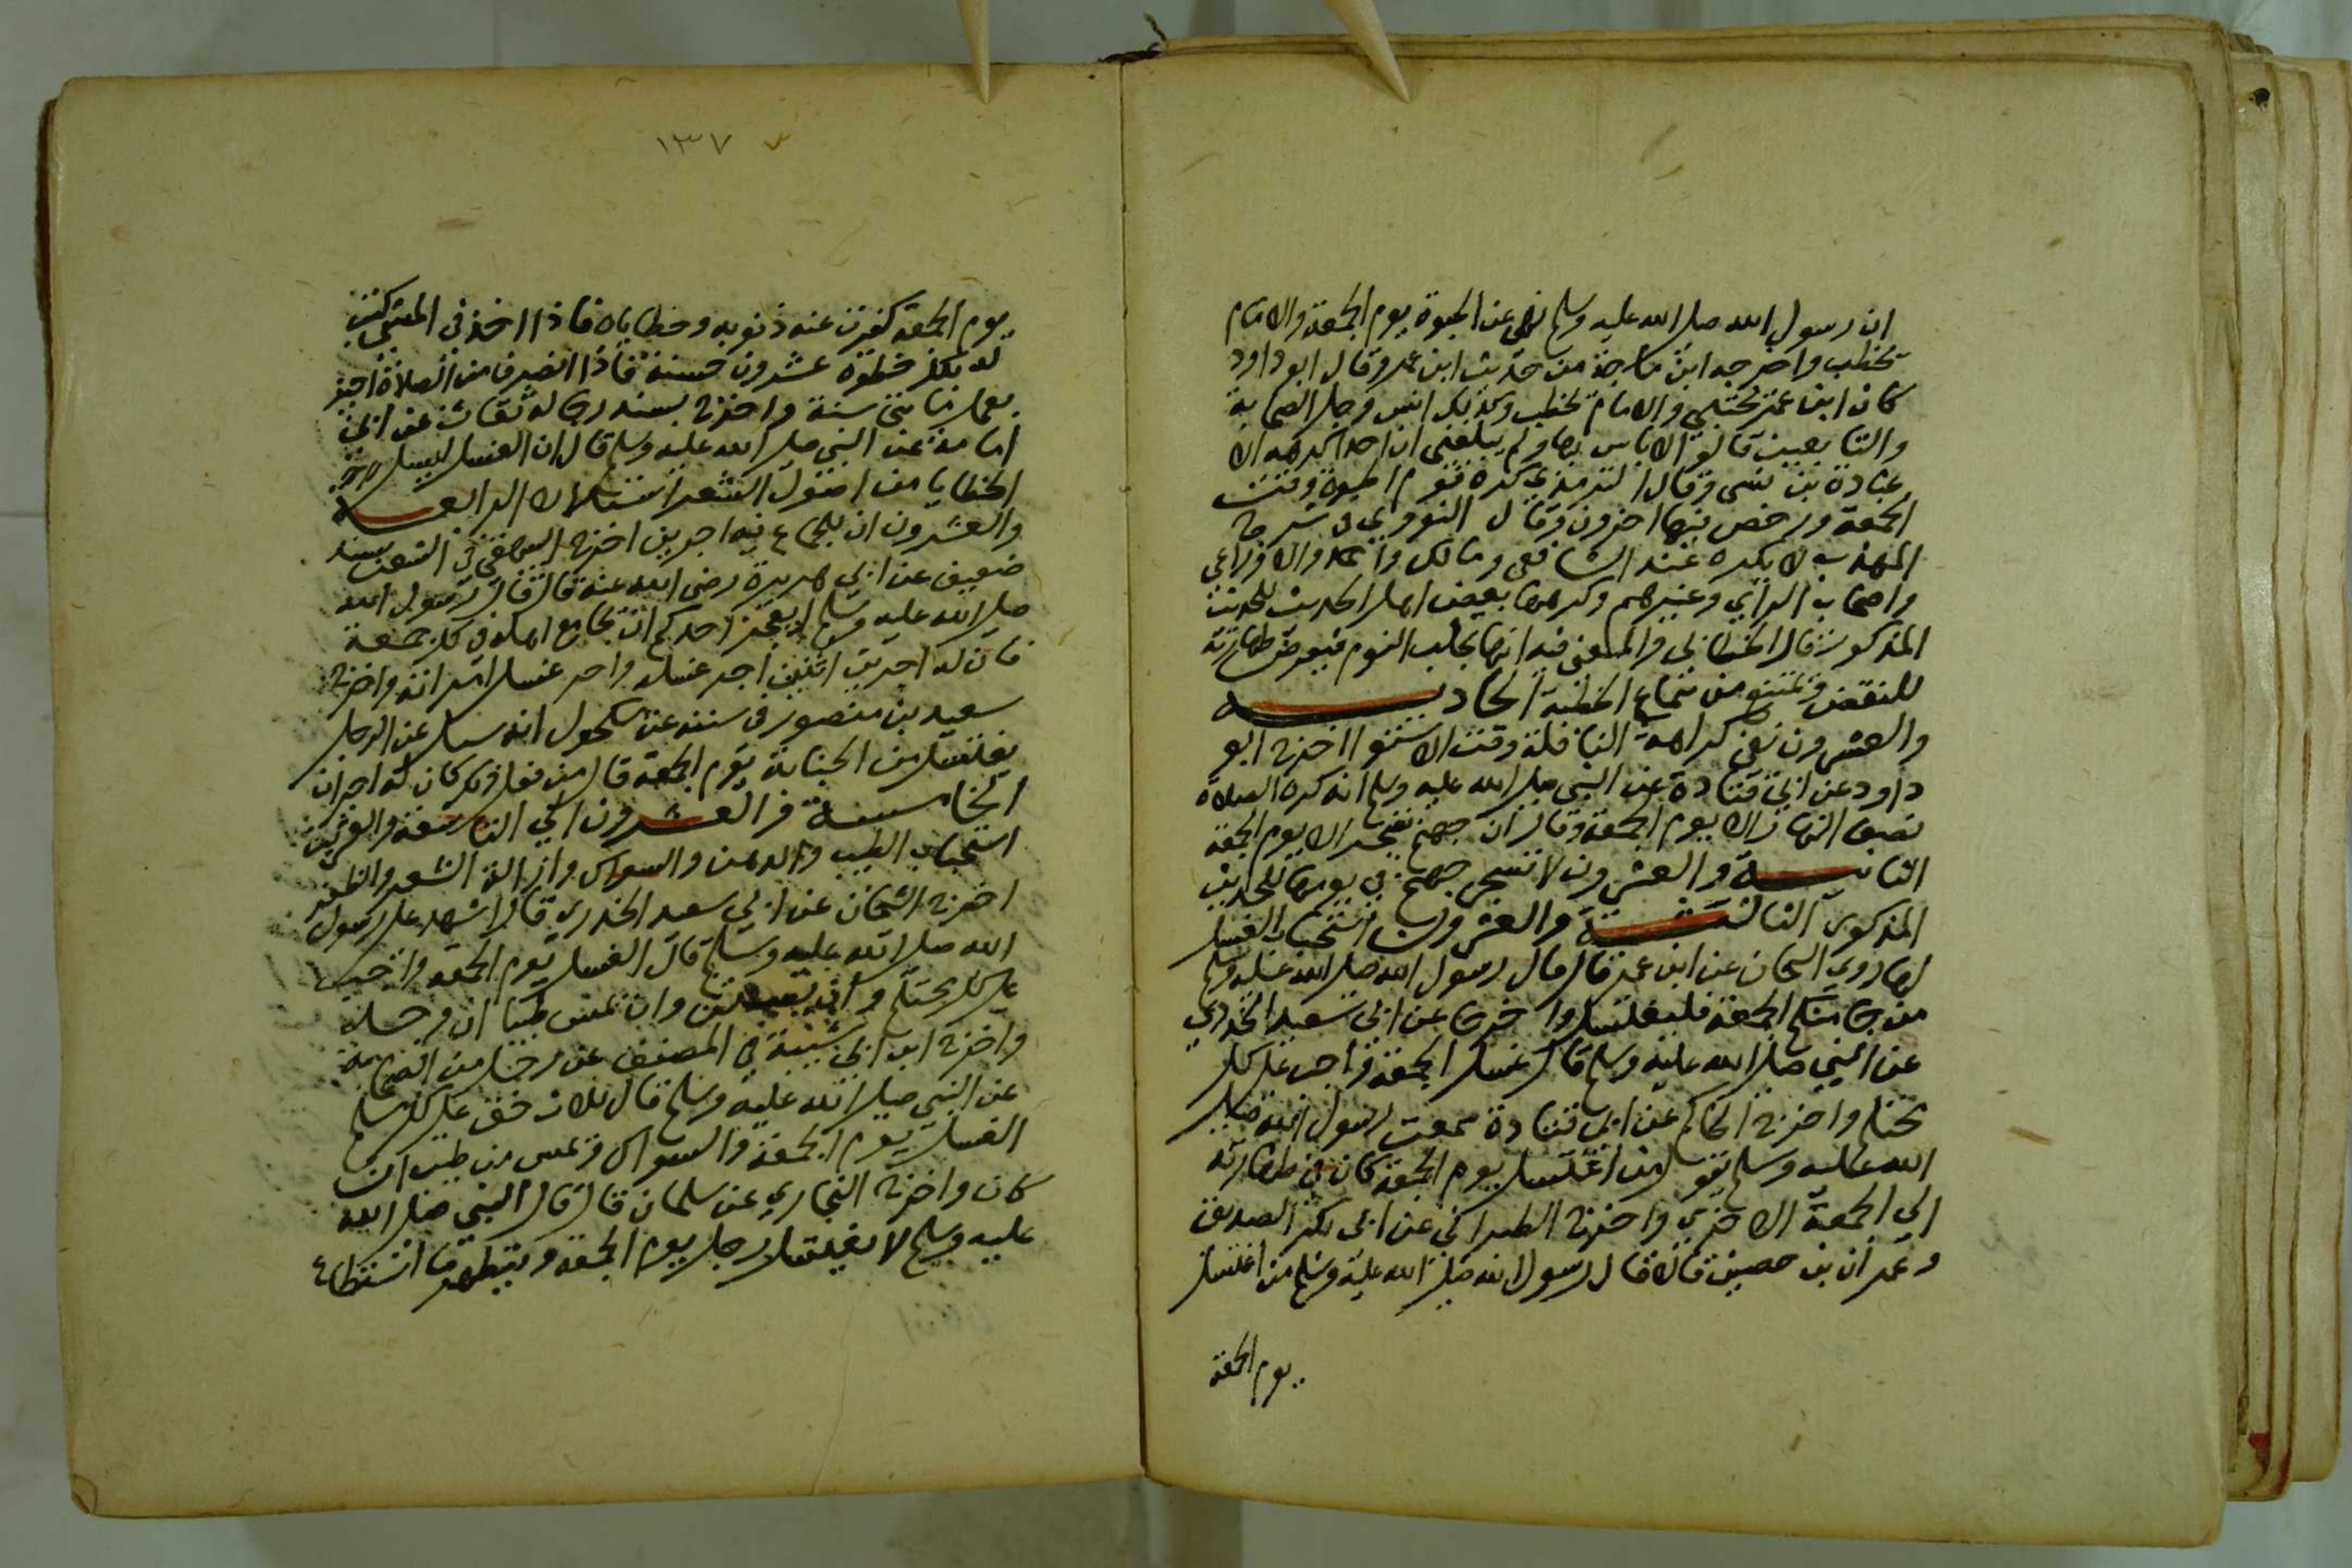 ان رسول الله صلى الله عليه وسلم نهى عن الحبوة يوم الجمعة والامام
يخطب واخرجه ابن ماجة من حديث ابن عمر وقال ابو داود
كان ابن عمر يحتبي والامام يخطب وكذلك انس وجل الصحابة
والتابعين قالوا لا باس بها ولم يبلغني ان احدا كرهه الا
عبادة بن نسى وقال الترمذي كره قوم الحبوة وقت
الجمعة ورخص فيها اخرون وقال النووي في شرح
المهذب لا يكره عند الشافعي ومالك واحمد والاوزاعي
واصحاب الراي وغيرهم وكرهها بعض اهل الحديث للحديث
المذكور قال الخطابي والمعنى فيه انها تجلب النوم فيعرض طهارته
للنقض ويمنع من سماع الخطبة الحاديــة
والعشرون نفي كراهة النافلة وقت الاستوا اخرج ابو
داود عن ابي قتادة عن النبي صلى الله عليه وسلم انه كره الصلاة
نصف النهار الا يوم الجمعة وقال ان جهنم تسجر الا يوم الجمعة
الثانيــة والعشرون لا تسجر جهنم في يومها للحديث
المذكور الثالثــة والعشرون استحباب الغسل
لها روي الشيخان عن ابن عمر قال قال رسول الله صلى الله عليه وسلم
من جا منكم الجمعة فليغتسل واخرجا عن ابي سعيد الخدري
عن النبي صلى الله عليه وسلم قال غسل الجمعة واجب على كل
محتلم واخرج الحاكم عن ابي قتادة سمعت رسول الله صلى
الله عليه وسلم يقول من اغتسل يوم الجمعة كان في طهارته
الي الجمعة الاخري واخرج الطبراني عن ابي بكر الصديق
وعمران بن حصين قالا قال رسول الله صلى الله عليه وسلم من اغتسل
يوم الجمعة
١٣٧
يوم الجمعة كفرت عنه ذنوبه وخطاياه فاذا اخذ في المشي كتب
له بكل خطوة عشرون حسنة فاذا انصرف من الصلاة اجيز
بعمل مايتي سنة واخرج بسند رجاله ثقات عن ابي
امامة عن النبي صلى الله عليه وسلم قال ان الغسل ليسل
الخطايا من اصول الشعر استلالا الرابعــة
والعشرون ان للجماع فيه اجرين اخرج البيهقي في الشعب بسند
ضعيف عن ابي هريرة رضي الله عنه قال قال رسول الله
صلى الله عليه وسلم ايعجز احدكم ان يجامع اهله في كل جمعة
فان له اجرين اثنين اجر غسله واجر غسل امراته واخرج
سعيد بن منصور في سننه عن مكحول انه سيل عن الرجل
يغتسل من الجنابة يوم الجمعة قال من فعل ذلك كان له اجران
الخامســة والعشرون الي التاسعة والعشرين
استحباب الطيب والدهن والسواك وازالة الشعر والظفر
اخرج الشيخان عن ابي سعيد الخدري قال اشهد على رسول
الله صلى الله عليه وسلم قال الغسل يوم الجمعة واجب
على كل محتلم وان يستن وان يمس طيبا ان وجده
واخرج ابن ابي شيبة في المصنف عن رجل من الصحابة
عن النبي صلى الله عليه وسلم قال ثلاث حق على كل مسلم
الغسل يوم الجمعة والسواك ويمس من طيب ان
كان واخرج البخاري عن سلمان قال قال النبي صلى الله
عليه وسلم لا يغتسل رجل يوم الجمعة ويتطهر ما استطاع